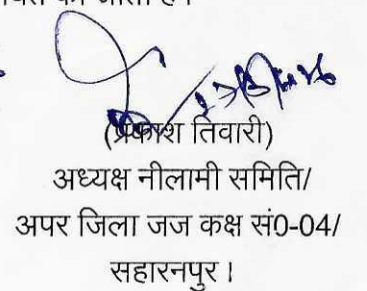 की जाती है।
(प्रकाश तिवारी)
अध्यक्ष नीलामी समिति/
अपर जिला जज कक्ष सं0-04/
सहारनपुर।